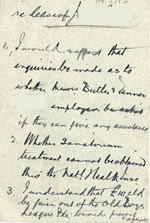 1, I would suggest that
enquiries be made as to
whether Messrs
employer be asked
if they can give any assistance
2. Whether Sanatorium
treatment cannot be obtained
thro' the Natl Health Ins.
3. I understand that £ wld
be given out of the Old Boys
League Fd. towards